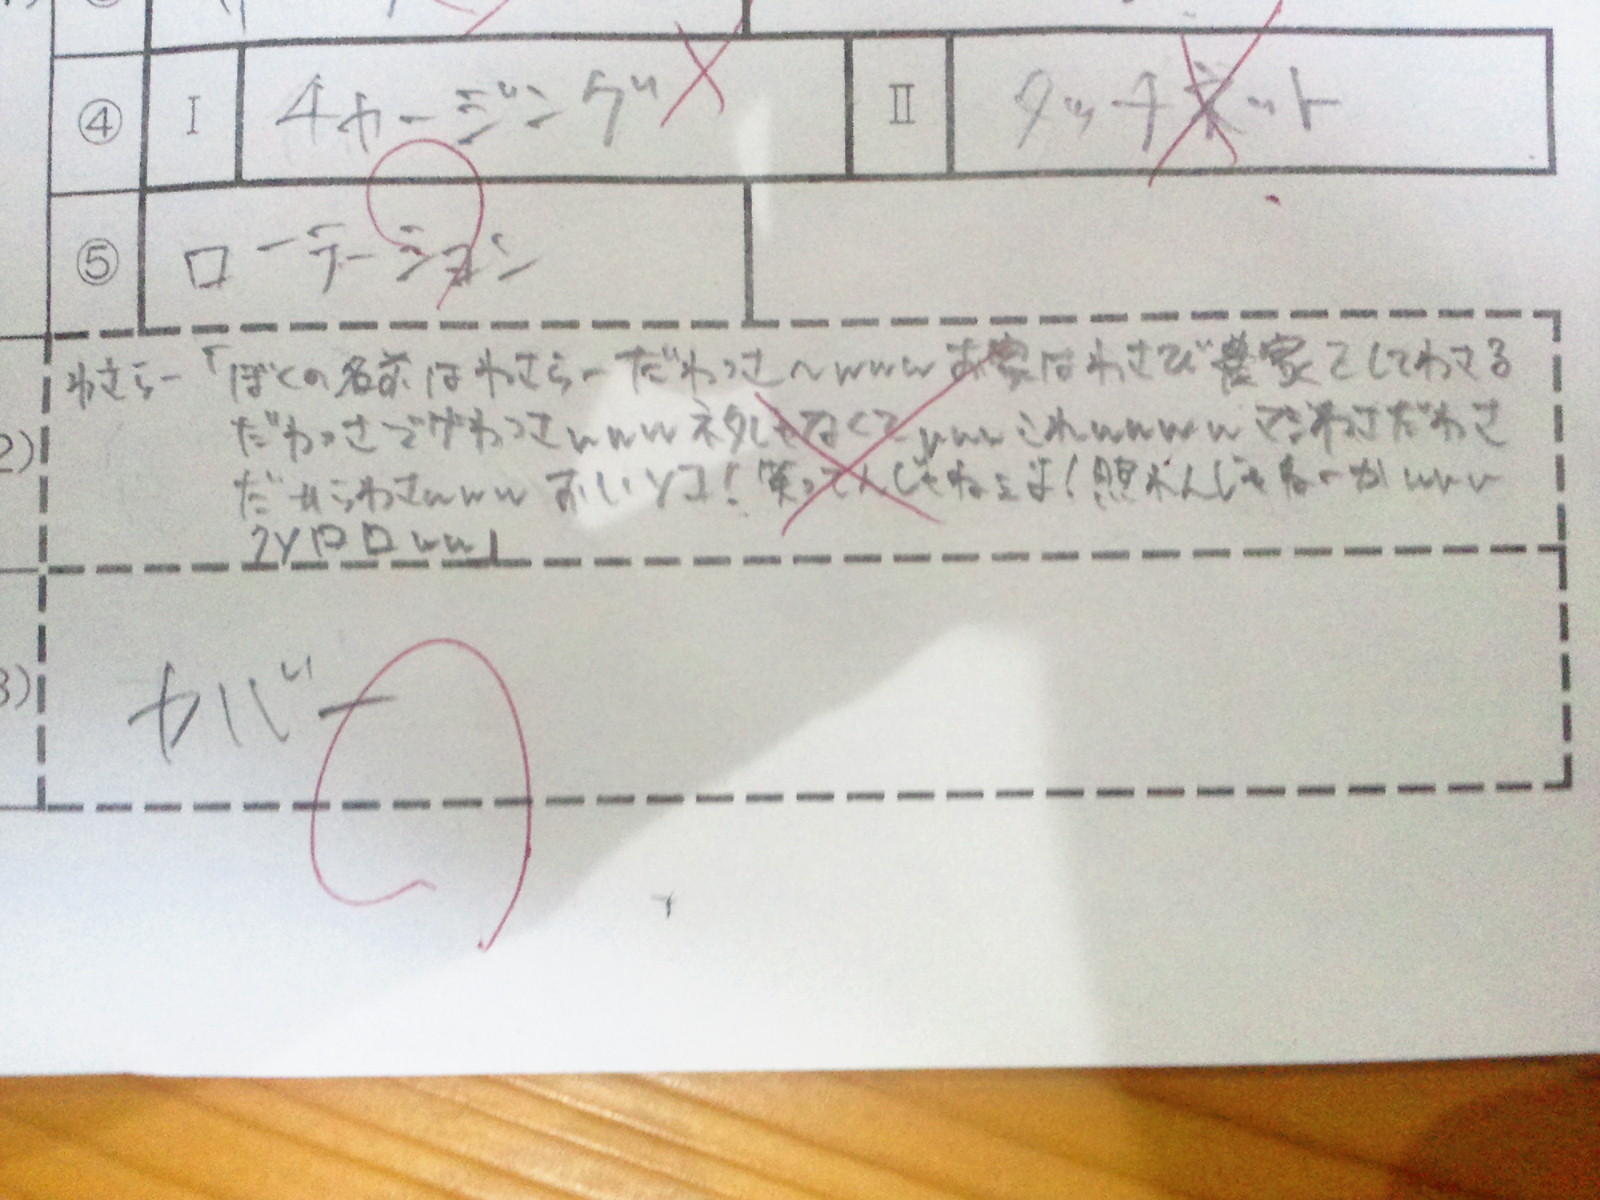 ④ Ⅰ チャージング Ⅱ タッチネット
⑤ ローテーション
2) わさらー「ぼくの名前はわさらーだわっさ〜www お家はわさび農家をしてわさる
だわっさでがわっさwww ネタじゃなくてwww これwwww までわさだわさ
だからわさwww おいソコ!笑ってんじゃねぇよ!照れんじゃねーかwww
ワロロww」
3) カバー